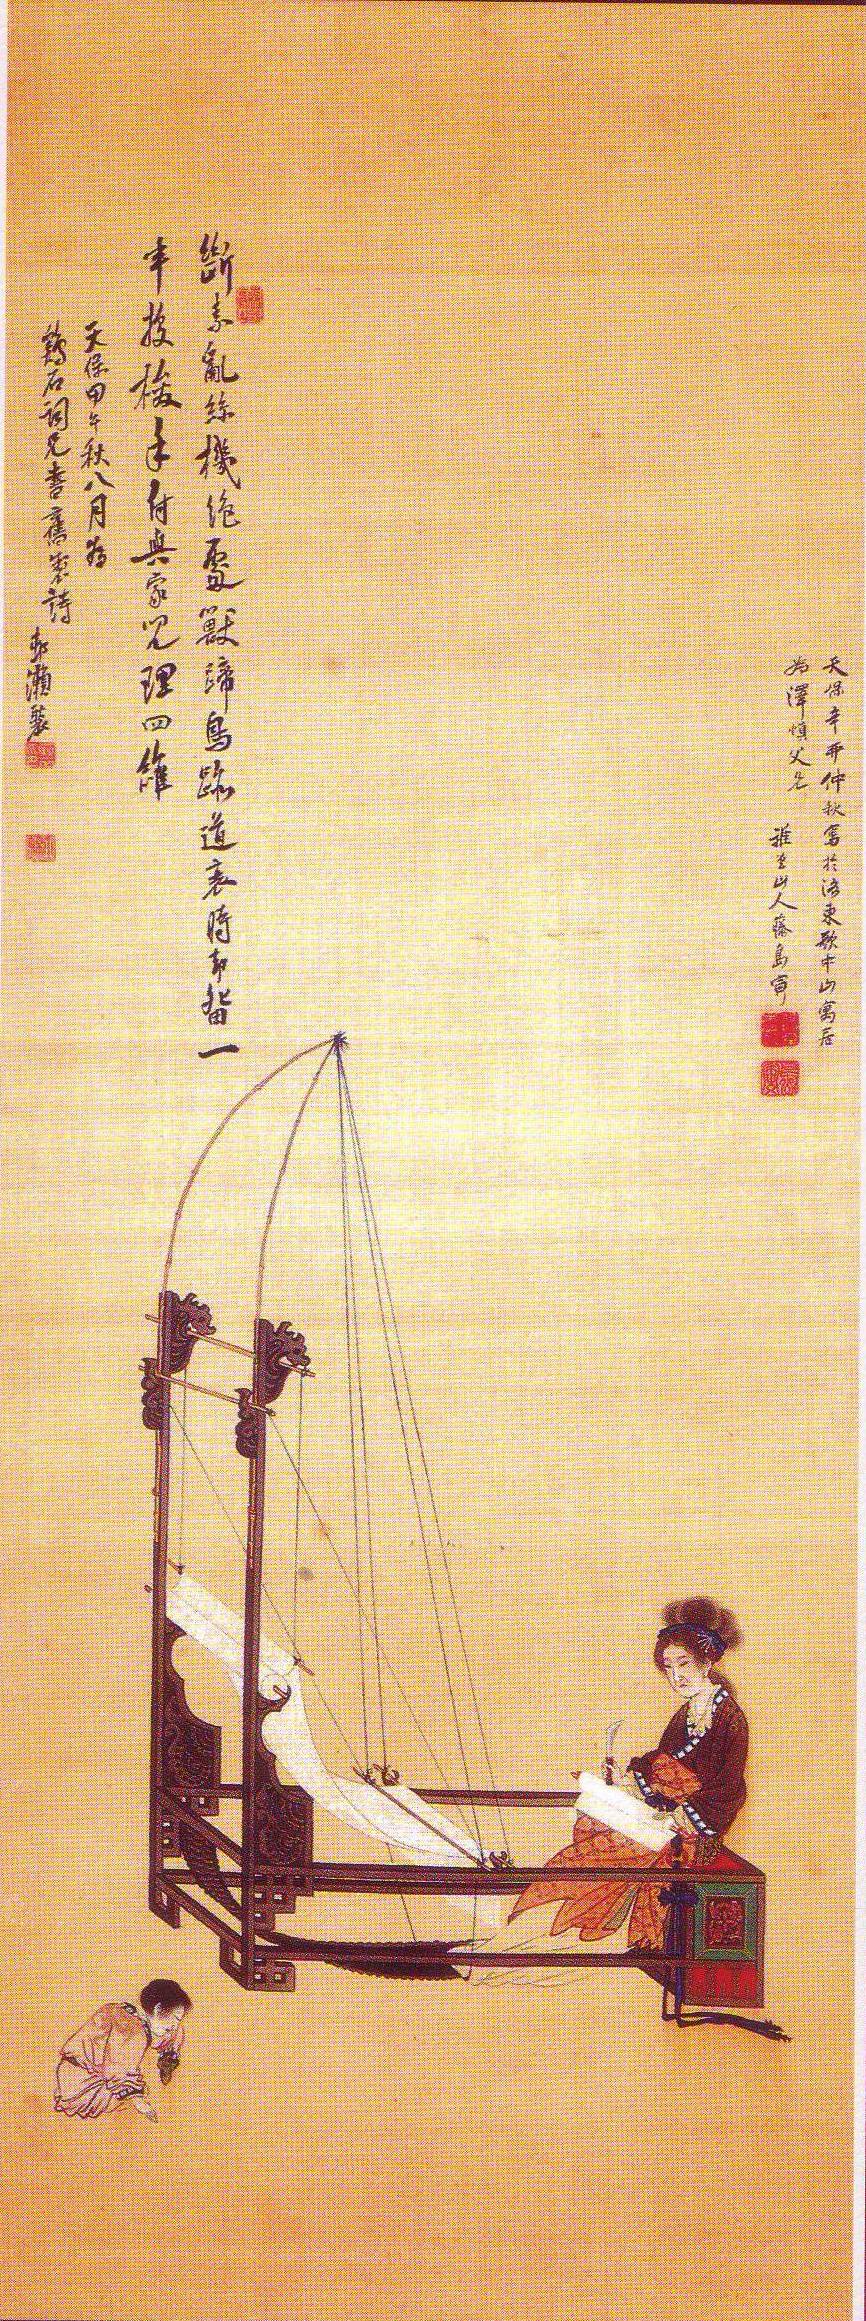 天保辛卯仲秋寫於洛東歌中山寓居
為澤慎父兄
山人藤島寫
斷素亂絲機絶處獸蹄鳥跡道衰時却留一
半投梭手付與家児理四維
天保甲午秋八月為
鶴石詞兄書舊製詩
賴襄